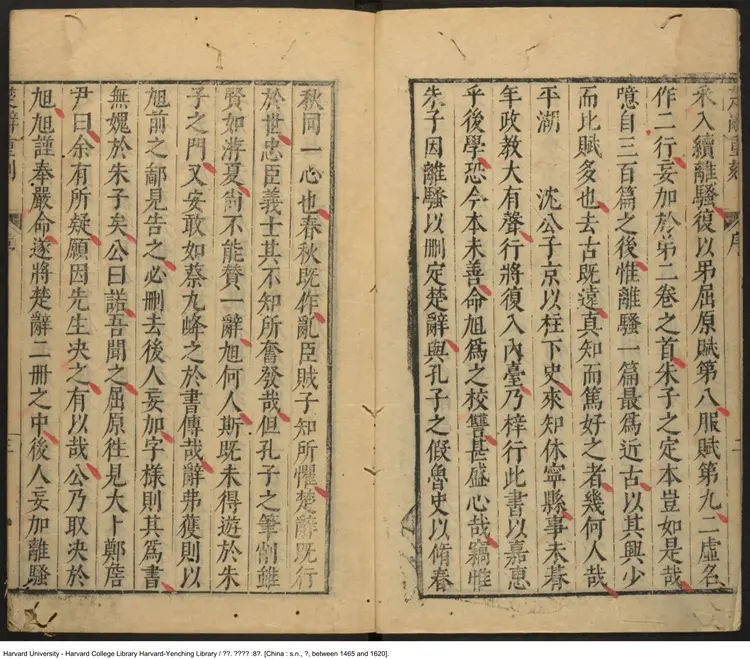 楚辭重刻
序
二
采入續離騷復以弔屈原賦第八服賦第九二虛名
作二行妄加於第二卷之首朱子之定本豈如是哉
噫自三百篇之後惟離騷一篇最爲近古以其興少
而比賦多也去古既遠真知而篤好之者幾何人哉
平湖 沈公子京以柱下史來知休寧縣事未朞
年政教大有聲行將復入內臺乃梓行此書以嘉惠
乎後學恐今本未善命旭爲之校讐甚盛心哉竊惟
朱子因離騷以刪定楚辭與孔子之假魯史以脩春
秋同一心也春秋既作亂臣賊子知所懼楚辭既行
於世忠臣義士其不知所奮發哉但孔子之筆削雖
賢如游夏尚不能賛一辭旭何人斯既未得遊於朱
子之門又安敢如蔡九峰之於書傳哉辭弗獲則以
旭前之鄙見告之必刪去後人妄加字樣則其爲書
無媿於朱子矣公曰諾吾聞之屈原徃見大卜鄭詹
尹曰余有所疑願因先生决之有以哉公乃取决於
旭旭謹奉嚴命遂將楚辭二冊之中後人妄加離騷
楚辭重刻
序
三
Harvard University - Harvard College Library Harvard-Yenching Library / ??. ???? :8?. [China : s.n., ?, between 1465 and 1620].